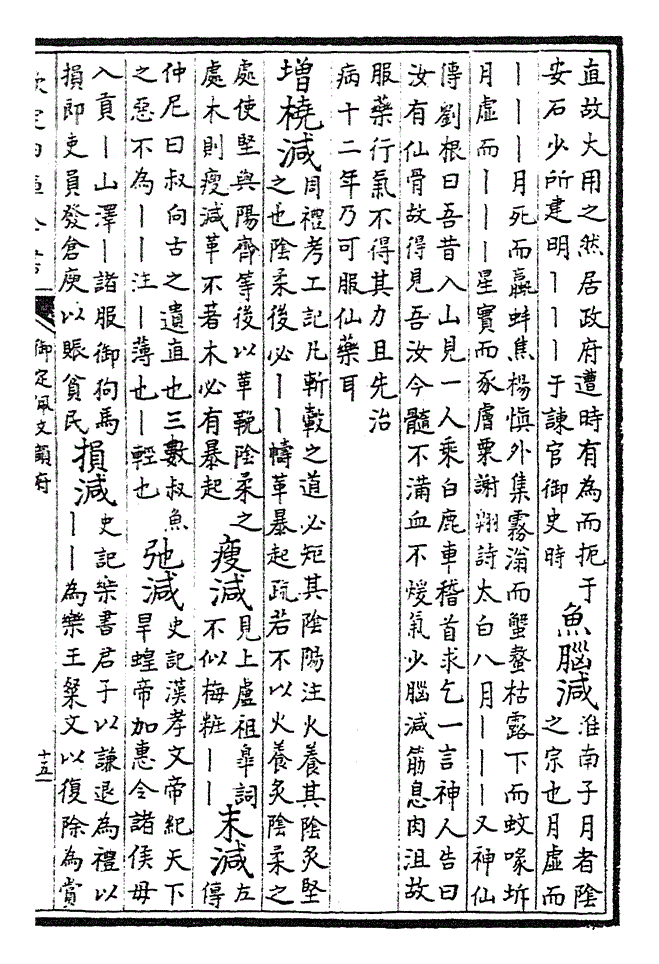 直故大用之然居政府遭時有為而扼于
安石少所建明丨丨丨于諫官御史時
魚腦減
淮南子月者陰
之宗也月虛而
丨丨丨月死而蠃蚌焦楊愼外集霧滃而蟹螯枯露下而蚊喙坼
月虛而丨丨丨星實而豕膚粟謝翔詩太白八月丨丨丨又神仙
傳劉根曰吾昔入山見一人乘白鹿車稽首求乞一言神人告曰
汝有仙骨故得見吾汝今髓不滿血不煖氣少腦減筋息肉沮故
服藥行氣不得其力且先治
病十二年乃可服仙藥耳
增橈減
周禮考工記凡斬轂之道必矩其陰陽注火養其陰炙堅
之也陰柔後必丨丨幬革暴起疏若不以火養炙陰柔之
處使堅與陽齊等後以革鞔陰柔之
處木則瘦減革不著木必有暴起
瘦減
見上盧祖臯詞
不似梅粧丨丨
末減
左
傳
仲尼曰叔向古之遺直也三數叔魚
之惡不為丨丨注丨薄也丨輕也
弛減
史記漢孝文帝紀天下
旱蝗帝加惠令諸侯毋
入貢丨山澤丨諸服御狗馬
損即吏員發倉庾以賑貧民
損減
史記樂書君子以謙退為禮以
丨丨為樂王粲文以復除為賞
御定佩文韻府
十五